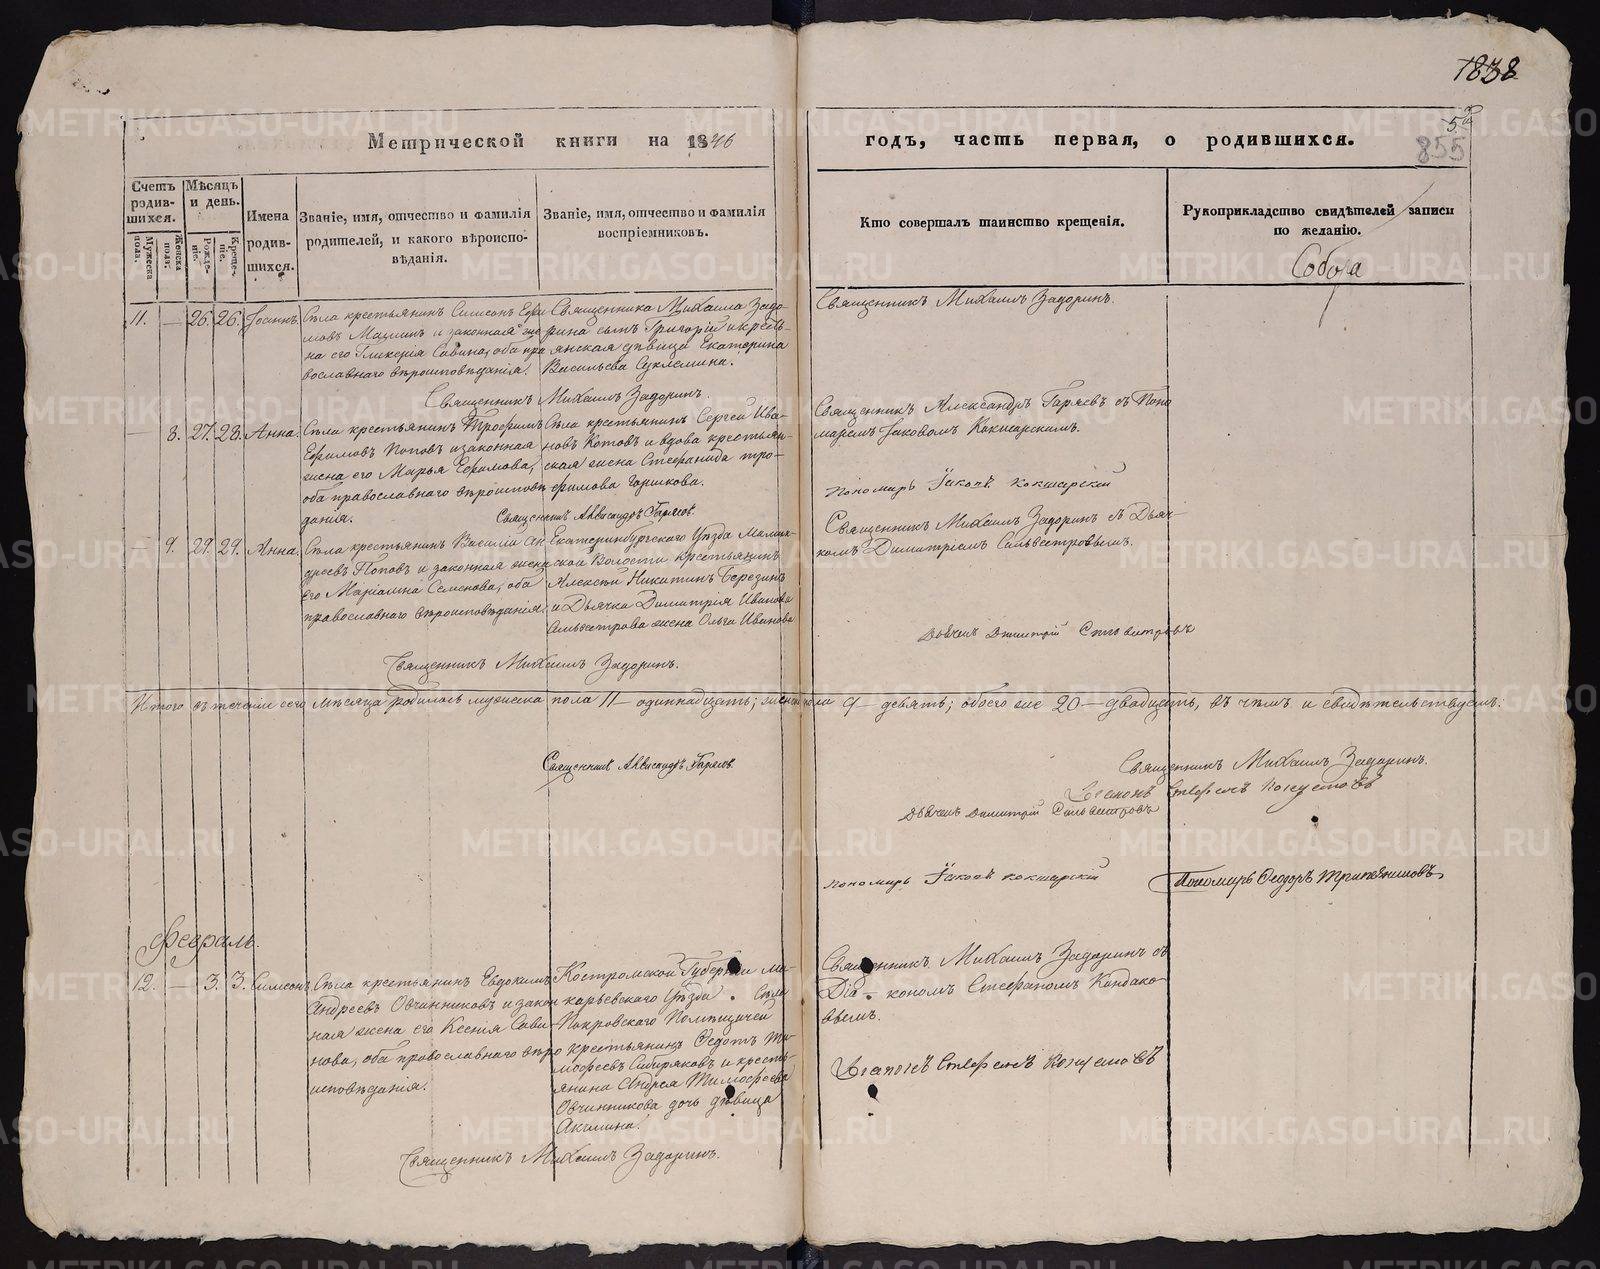 1838
5
855
Метрической книги на 1846
годъ, часть первая, о родившихся.
Счетъ родив-шихся.
Мужеска пола.
Женска пола.
Мѣсяцъ и день.
Рожде-ніе.
Креще-ніе.
Имена родив-шихся.
Званіе, имя, отчество и фамилія
родителей, и какого вѣроиспо-
вѣданія.
Званіе, имя, отчество и фамилія
воспріемниковъ.
Кто совершалъ таинство крещенія.
Рукоприкладство свидѣтелей записи
по желанію.
11. — 26. 26. Іоаннъ.
Села крестьянинъ Симеонъ Ефи
мовъ и законная же
на его Гликерія Савина, оба пра
вославнаго вѣроисповѣданія.
Священника Михаила Задо-
рина сынъ Григорій и кресть-
янская дѣвица Екатерина
Васильева
Священникъ Михаилъ Задоринъ.
Священникъ Михаилъ Задоринъ.
— 8. 27. 28. Анна.
Села крестьянинъ Трофимъ
Ефимовъ Поповъ и законная
жена его Марья Ефимова,
оба православнаго вѣроисповѣ
данія.
Села крестьянинъ Сергей Ива-
новъ Котовъ и вдова крестьян-
ская жена Стефанида Тро-
фимова Горшкова.
Священникъ Александръ Гаряевъ.
Священникъ Александръ Гаряевъ съ Поно
маремъ Іаковомъ Кокшарскимъ.
Пономарь Іаковъ Кокшарскій
— 9. 29. 29. Анна.
Села крестьянинъ Василій Ан
дреевъ Поповъ и законная жена
его Маріанна Семенова, оба
православнаго вѣроисповѣданія.
Екатеринбургскаго Уѣзда
ской Волости крестьянинъ
Алексѣй Никитинъ Березинъ
и Дьячка Димитрія Иванова
Сильвестрова жена Ольга Иванова
Священникъ Михаилъ Задоринъ.
Священникъ Михаилъ Задоринъ съ Дьяч-
комъ Димитріемъ Сильвестровымъ.
Дьячекъ Димитрій Сильвестровъ
Итого въ теченіе сего мѣсяца родилось мужеска пола 11 — одиннадцать; женска пола 9 — девять; обоего же 20 — двадцать, въ чемъ и свидѣтельствуемъ:
Священникъ Александръ Гаряевъ.
Священникъ Михаилъ Задоринъ.
Діаконъ Стефанъ Кондаковъ
Дьячекъ Димитрій Сильвестровъ
Пономарь Іаковъ Кокшарскій
Пономарь Ѳеодоръ
Февраль.
12. — 3. 3. Симеонъ.
Села крестьянинъ Евдокимъ
Андреевъ Овчинниковъ и закон
ная жена его Ксенія Сави
нова, оба православнаго вѣро
исповѣданія.
Костромской Губерніи Ма-
карьевскаго Уѣзда Села
Покровскаго Помѣщичей
крестьянинъ Ѳедотъ Ти-
мофеевъ Сибиряковъ и кресть-
янина Андрея Тимофеева
Овчинникова дочь дѣвица
Акилина.
Священникъ Михаилъ Задоринъ.
Священникъ Михаилъ Задоринъ съ
Діа-кономъ Стефаномъ Кондако
вымъ.
Діаконъ Стефанъ Кондаковъ
METRIKI.GASO-URAL.RU